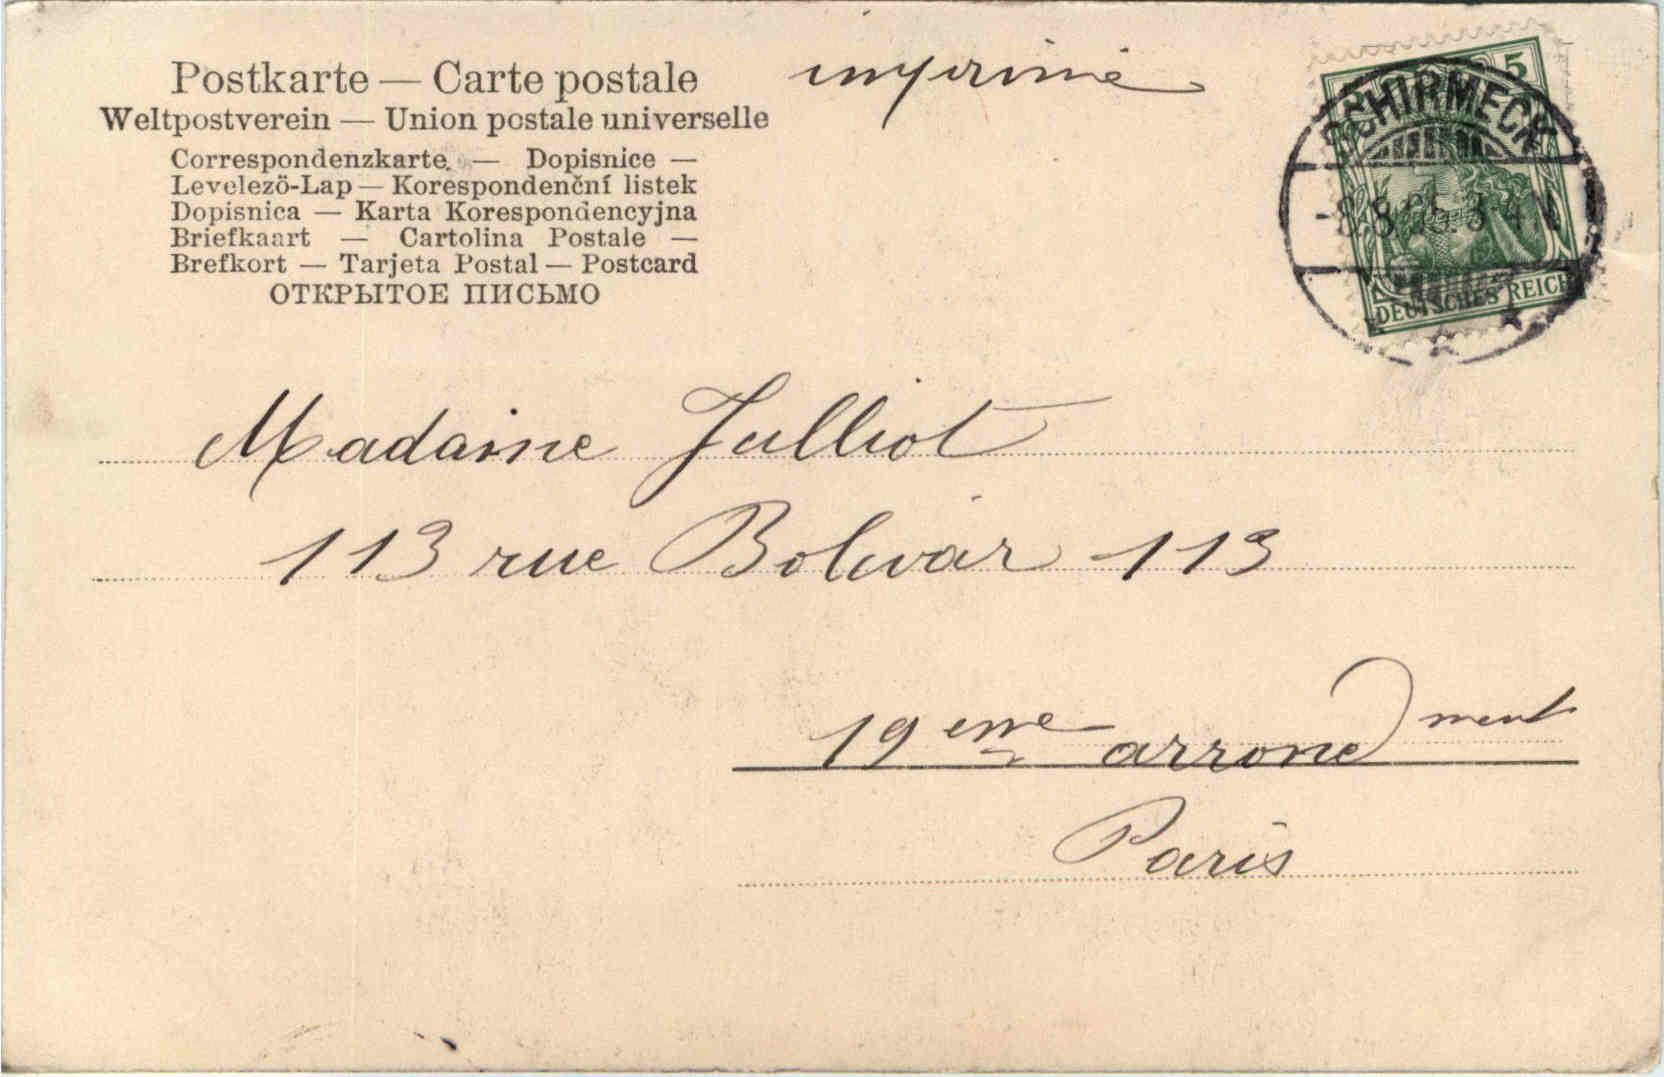 Postkarte — Carte postale
Weltpostverein — Union postale universelle
Correspondenzkarte. — Dopisnice —
Levelezö-Lap — Korespondenční listek
Dopisnica — Karta Korespondencyjna
Briefkaart — Cartolina Postale —
Brefkort — Tarjeta Postal — Postcard
ОТКРЫТОЕ ПИСЬМО
imprimé
5
SCHIRMECK
DEUTSCHES REICH
Madame Julliot
113 rue Bolivar 113
19eme arrondment
Paris